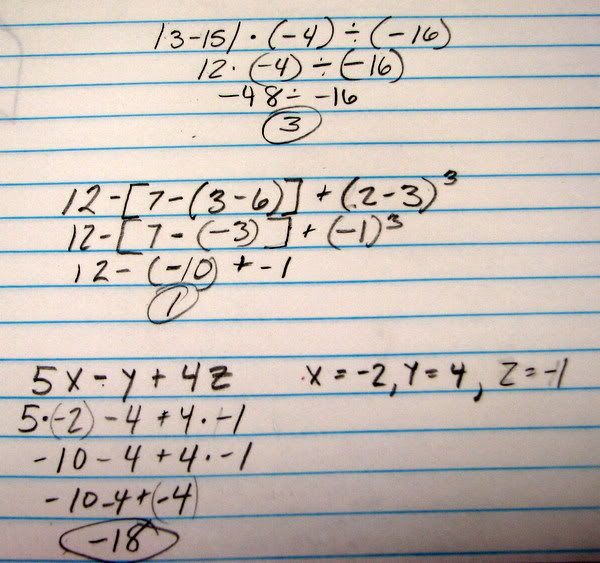 |3-15| · (-4) ÷ (-16)
12 · (-4) ÷ (-16)
-48 ÷ -16
3
12-[7-(3-6)] + (2-3)³
12-[7-(-3)] + (-1)³
12-(-10) + -1
1
5x-y+4z x = -2, y = 4, z = -1
5·(-2) - 4 + 4·-1
-10-4+4·-1
-10-4+(-4)
-18